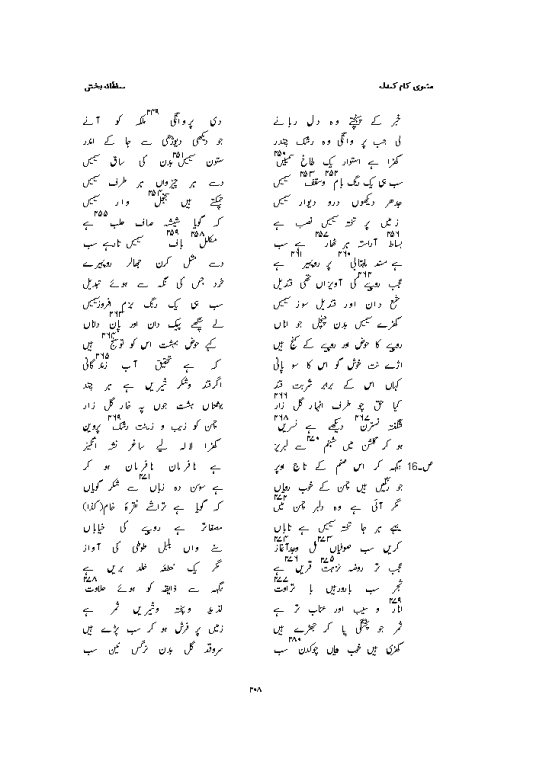 مثنوی کام کندلہ سلطانہ بخشی
خبر کے پہنچے وہ دل ربانے دی پروانگی۲۴۹ ملکہ کو آنے
لی جب پروانگی وہ رشک چندر جو دیکھی دیوڑھی سے جا کے اندر
کھڑا ہے استوار یک طاخ سیمیں۲۵۰ ستون سیمیں۲۵۱ بدن کی ساق سیمیں
سب ہی یک رنگ بام۲۵۲ وسقف۲۵۳ سیمیں دسے ہر چیزواں ہر طرف سیمیں
جدھر دیکھوں درو دیوار سیمیں چمکتے ہیں سجنجل۲۵۴ وار سیمیں
زمیں پر تختہ سیمیں نصب ہے کہ گویا شیشہ صاف حلب۲۵۵ ہے
بساط۲۵۶ آراستہ ہر ٹھار۲۵۷ ہے سب مکلل۲۵۸ باف۲۵۹ سیمیں تارہے سب
ہے مسند پر روپیر ہے دسے مثل کرن جھالر روپیرے
عجب روپے۲۶۲ کی آویزاں تھی قندیل خرد جس کی نگہ سے ہوئے تبدیل
شمع دان اور قندیل سوز سیمیں سب ہی یک رنگ بزم فروزسیمیں
کھڑے سیمیں بدن چنچل جو اناں لے پیک دان اور پان۲۶۳ داناں
روپے کا حوض اور روپے کے گنج ہیں کہے حوض بہشت اس کو ہیں
اڑے نت خوش گو اس کا سو پانی کہ ہے تحقیق آب زندگانی۲۶۵
کہاں اس کے برابر شربت قند اگرقند وشکر شیریں ہے ہر چند
کیا حق۲۶۶ چو طرف انہار گل زار بہشت جوں پہ خار گل زار
شگفتہ نسترن۲۶۷ دیکھے ہے نسریں۲۶۸ چمن کو زیب و زینت رشک۲۶۹ پرویں
ہو کر گلشن میں شبنم۲۷۰ سے لبریز کھڑا لالہ لیے ساغر نشہ انگیز
ص۔16 نگہہ کر اس صنم کے تاج اوپر ہے نافرمان نافرماں ہو کر
جو رنگیں ہیں چمن کے خوب رویاں ہے سوسن دہ زباں۲۷۱ سے شکر گویاں
مگر۲۷۲ آئی ہے وہ دلبر چمن میں کہ گویا ہے تراشے نقرۂ خام(کذا)
نیچے ہر جا تختہ سیمیں ہے تاباں مصفاتر ہے روپے کی خیاباں
کریں سب صوفیاں۲۷۳ مل وجدآغاز۲۷۴ سنے واں بلبل طوطی کی آواز
عجب تر روضہ نزہت۲۷۵ قریں۲۷۶ ہے مگر یک خطہ خلد بریں ہے
شجر۲۷۷ سب بارورہیں با تراوت نگہہ سے ذائقہ کو ہوئے حلاوت۲۷۸
انار۲۷۹ و سیب اور عناب تر ہے لذیذ وپختہ وشیریں ثمر ہے
ثمر جو پختگی پا کر جھڑے ہیں زمیں پر فرش ہو کر سب پڑے ہیں
کھڑی ہیں خوب وہاں چوکدن۲۸۰ سب سروقد گل بدن نرگس نین سب
۲۰۸